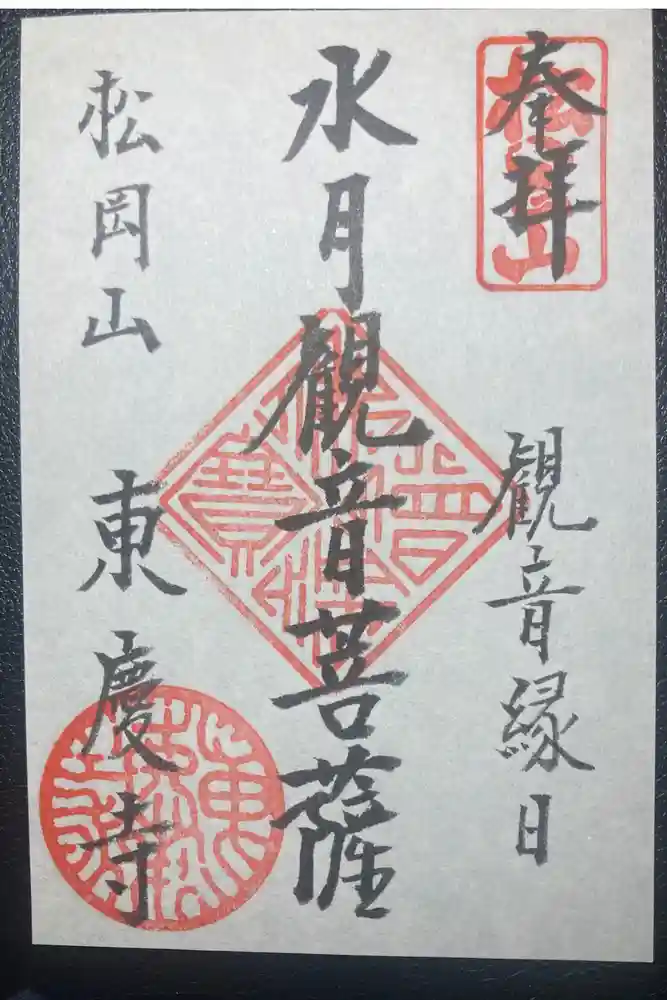 奉拝
松岡山
観音縁日
水月觀音菩薩
松岡山
東慶寺